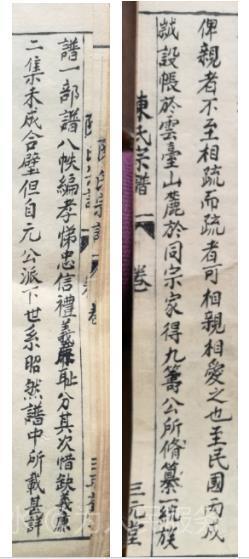 俾親者不至相疏而疏者可相親相愛之也至民國丙戌
誠設帳於雲臺山麓於同宗家得九籌公所脩纂一統族
陳氏宗譜 卷 三元堂
譜一部譜八帙編孝悌忠信禮義廉恥分其次惜缺義廉
二集未成合璧但自元公派下世系昭然譜中所載甚詳